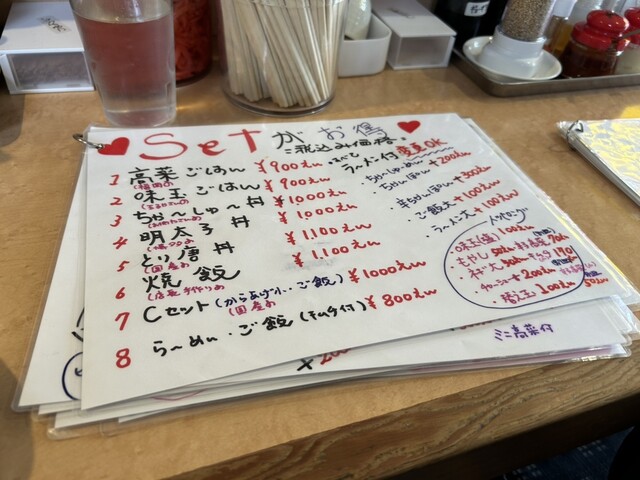 Setがお得
税込み価格
すべてラーメン付 変更OK
1 高菜ごはん ¥900えん
(福岡の)
2 味玉ごはん ¥900えん
3 ちゃ〜しゅ〜丼 ¥1000えん
4 明太子丼 ¥1000えん
5 とり唐丼 ¥1100えん
(国産の)
6 焼飯 ¥1,100えん
(店長手作りの)
7 Cセット(からあげ小・ご飯) ¥1000えん
(国産の)
8 らーめん・ご飯(キムチ付) ¥800えん
・ちゃーしゅーめん +200えん
・ちゃんぽん
・辛ちゃんぽん +300えん
・ご飯大 +100えん
・ラーメン大 +100えん
トッピング
味玉(塩) 100えん
・もやし 50えん
・ネギ大
・チャーシュー 200えん
・替玉 100えん
ミニ高菜付